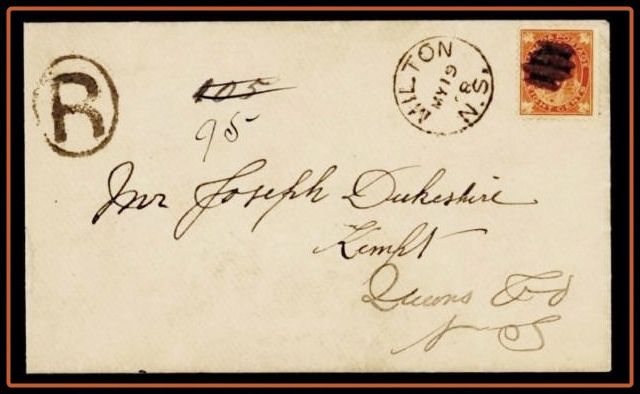 R
105
95
MILTON N.S.
MY 19
98
EIGHT CENTS
Mr Joseph Dukeshire
Kempt
Queens Co
N S